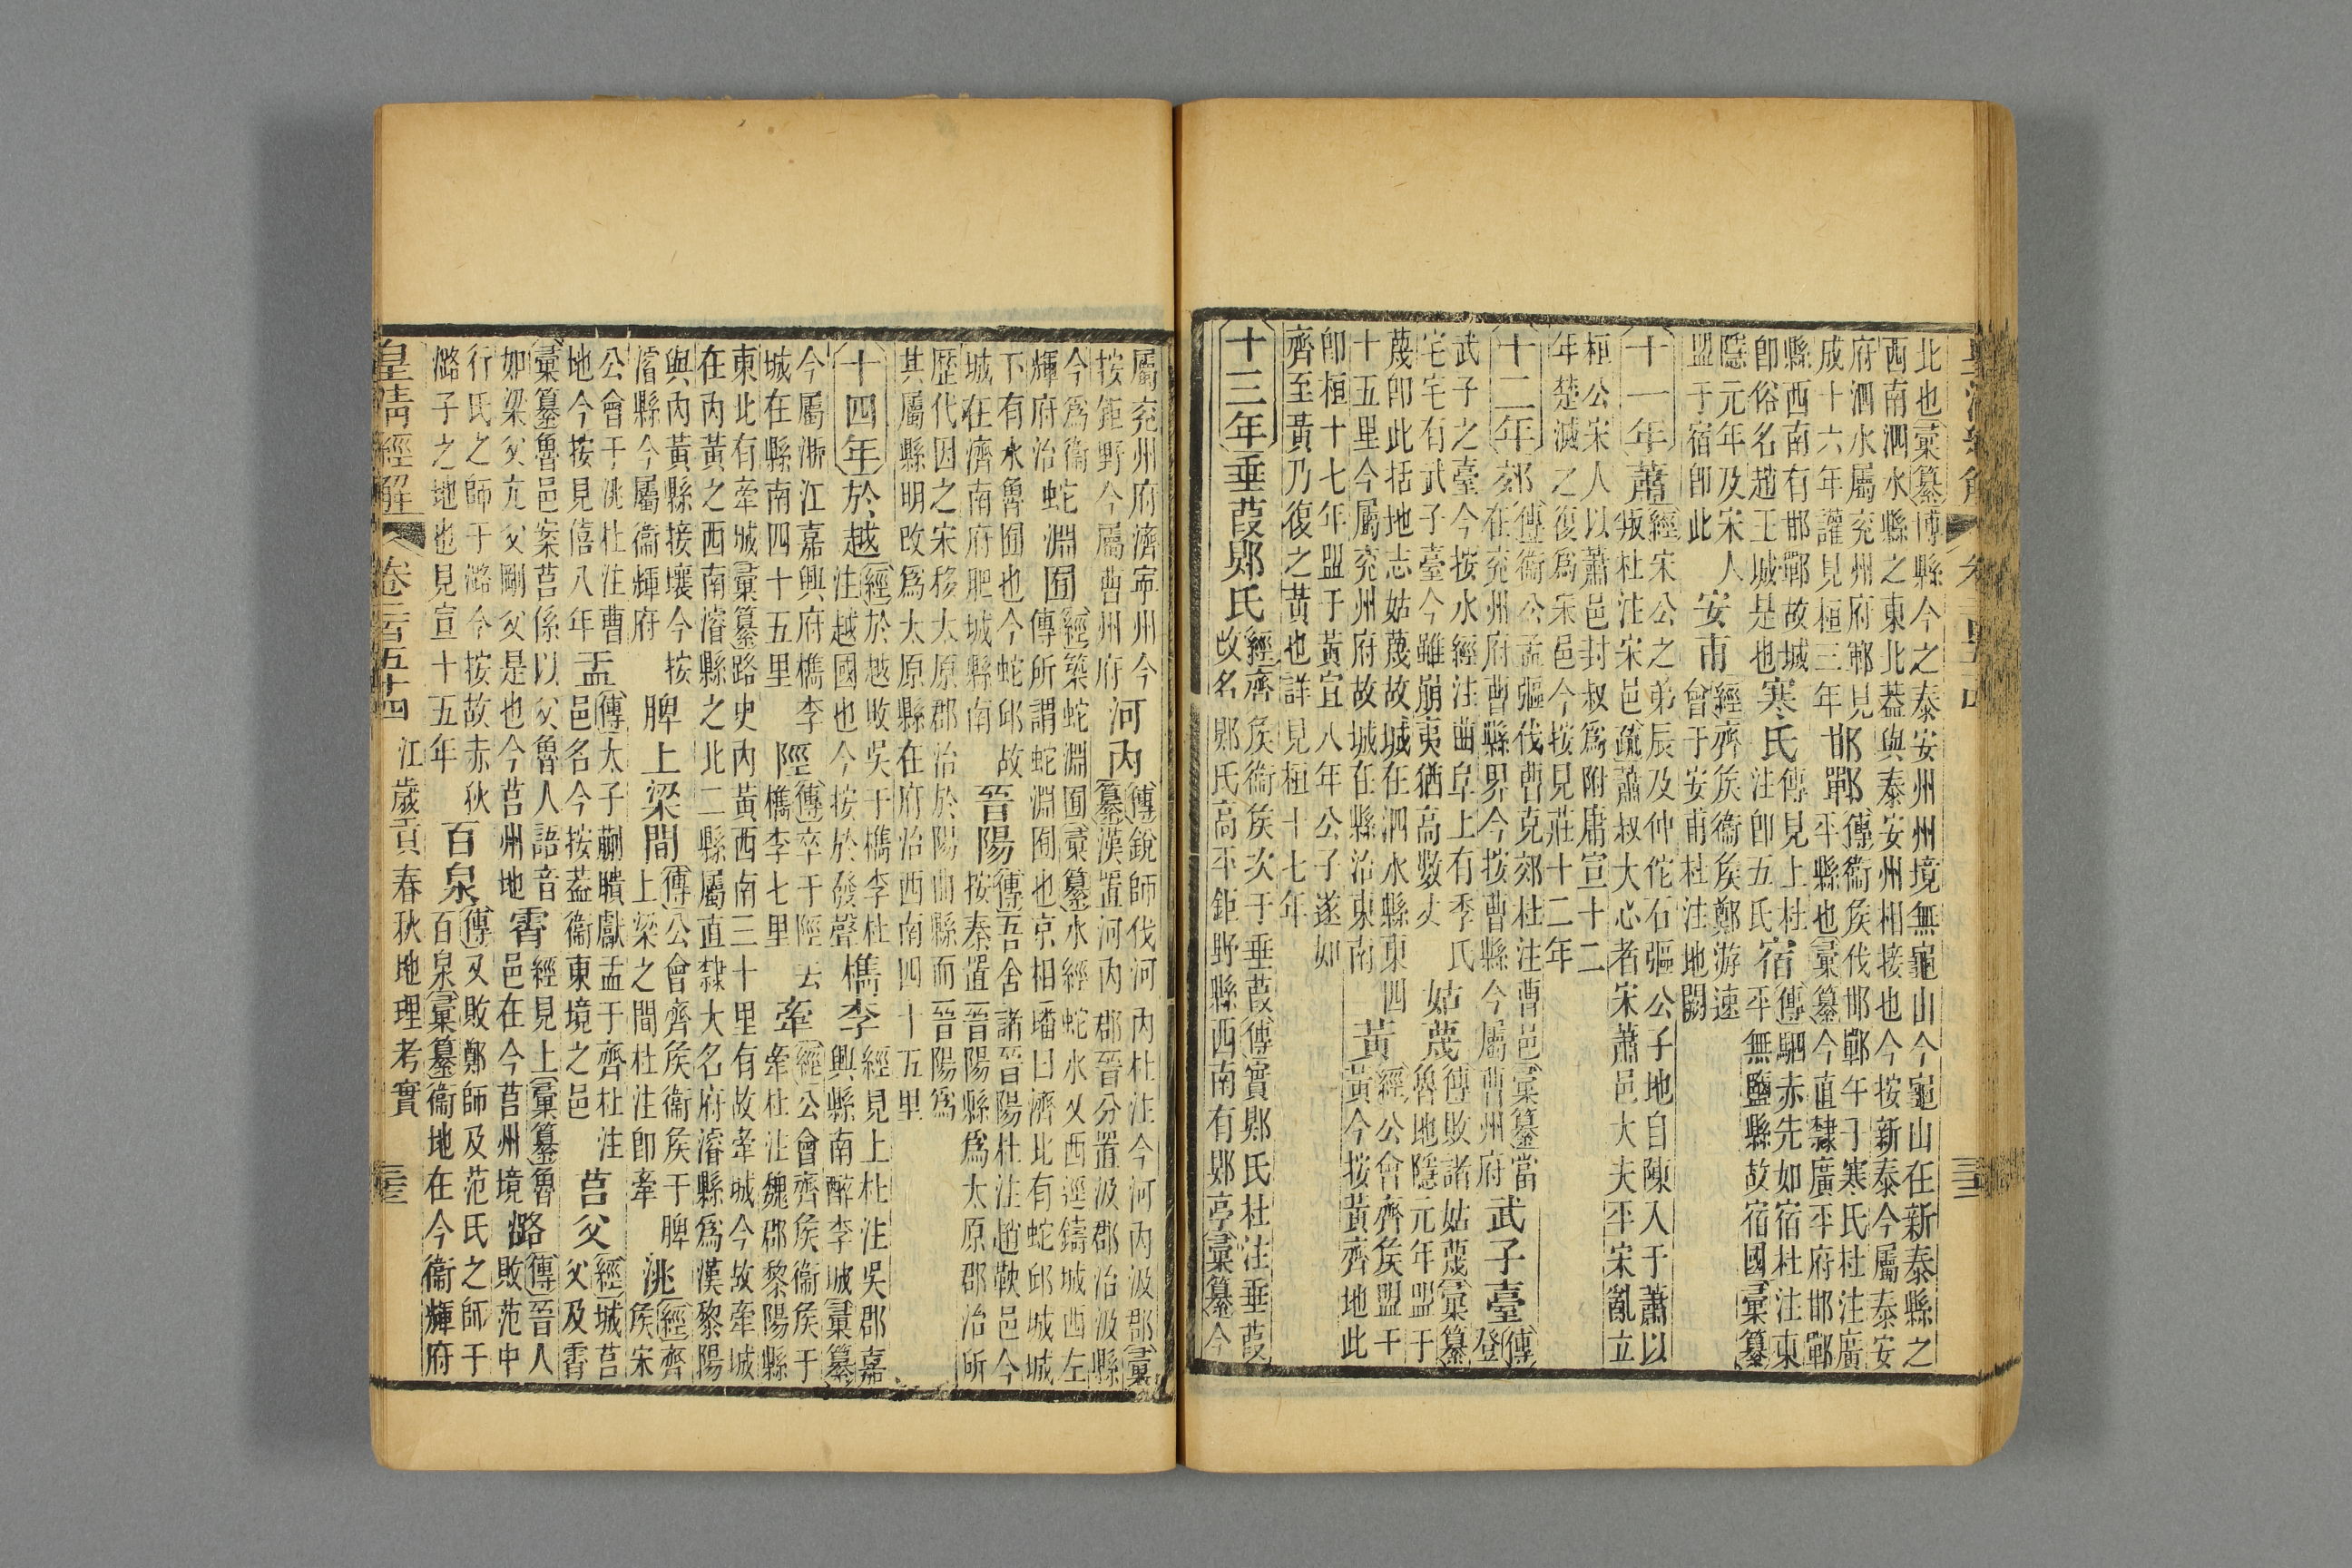 北也彙纂博縣今之泰安州州境無龜山今龜山在新泰縣之
西南泗水縣之東北蓋與泰安州相接也今按新泰今屬泰安
府泗水屬兗州府鄆見
成十六年讙見桓三年
邯鄲
傳衞侯伐邯鄲午于寒氏杜注廣
平縣也彙纂今直隸廣平府邯鄲
縣西南有邯鄲故城
卽俗名趙王城是也
寒氏
傳見上杜
注卽五氏
宿
傳駟赤先如宿杜注東
平無鹽縣故宿國彙纂
隱元年及宋人
盟于宿卽此
安甫
經齊侯衞侯鄭游速
會于安甫杜注地闕
十一年
蕭
經宋公之弟辰及仲佗石彄公子地自陳入于蕭以
叛杜注宋邑疏蕭叔大心者宋蕭邑大夫平宋亂立
桓公宋人以蕭邑封叔爲附庸宣十二
年楚滅之復爲宋邑今按見莊十二年
十二年
郊
傳衞公孟彄伐曹克郊杜注曹邑彙纂當
在兗州府曹縣界今按曹縣今屬曹州府
武子臺
傳
登
武子之臺今按水經注曲阜上有季氏
宅宅有武子臺今雖崩夷猶高數丈
姑蔑
傳敗諸姑蔑彙纂
魯地隱元年盟于
蔑卽此括地志姑蔑故城在泗水縣東四
十五里今屬兗州府故城在縣治東南
黃
經公會齊侯盟于
黃今按黃齊地此
卽桓十七年盟于黃宣八年公子遂如
齊至黃乃復之黃也詳見桓十七年
十三年
垂葭郹氏
經齊侯衞侯次于垂葭傳實郹氏杜注垂葭
改名郹氏高平鉅野縣西南有郹亭彙纂今
屬兗州府濟寧州今
按鉅野今屬曹州府
河內
傳銳師伐河內杜注今河內汲郡彙
纂漢置河內郡晉分置汲郡治汲縣
今爲衞
輝府治
蛇淵囿
經築蛇淵囿彙纂水經蛇水又西逕鑄城西左
傳所謂蛇淵囿也京相璠曰濟北有蛇邱城城
下有水魯囿也今蛇邱故
城在濟南府肥城縣南
晉陽
傳吾舍諸晉陽杜注趙鞅邑今
按秦置晉陽縣爲太原郡治所
歷代因之宋移太原郡治於陽曲縣而晉陽爲
其屬縣明改爲太原縣在府治西南四十五里
十四年
於越
經於越敗吳于檇李杜
注越國也今按於發聲
檇李
經見上杜注吳郡嘉
興縣南醉李城彙纂
今屬浙江嘉興府檇李
城在縣南四十五里
陘
傳卒于陘去
檇李七里
牽
經公會齊侯衞侯于
牽杜注魏郡黎陽縣
東北有牽城彙纂路史內黃西南三十里有故牽城今故牽城
在內黃之西南濬縣之北二縣屬直隸大名府濬縣爲漢黎陽
與內黃縣接壤今按
濬縣今屬衞輝府
脾上梁間
傳公會齊侯衞侯于脾
上梁之間杜注卽牽
洮
經齊
侯宋
公會于洮杜注曹
地今按見僖八年
盂
傳太子蒯聵獻盂于齊杜注
邑名今按蓋衞東境之邑
莒父
經城莒
父及霄
彙纂魯邑案莒係以父魯人語音
如梁父亢父剛父是也今莒州地
霄
經見上彙纂魯
邑在今莒州境
潞
傳晉人
敗范中
行氏之師于潞今按故赤狄
潞子之地也見宣十五年
百泉
傳又敗鄭師及范氏之師于
百泉彙纂衞地在今衞輝府
皇清經解 卷二百五十四 江歲貢春秋地理考實